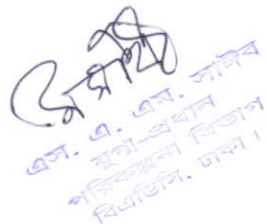 এস. এ. এম. সাইব
যুগ্ম-প্রধান
পরিকল্পনা বিভাগ
বিএডিসি, ঢাকা।